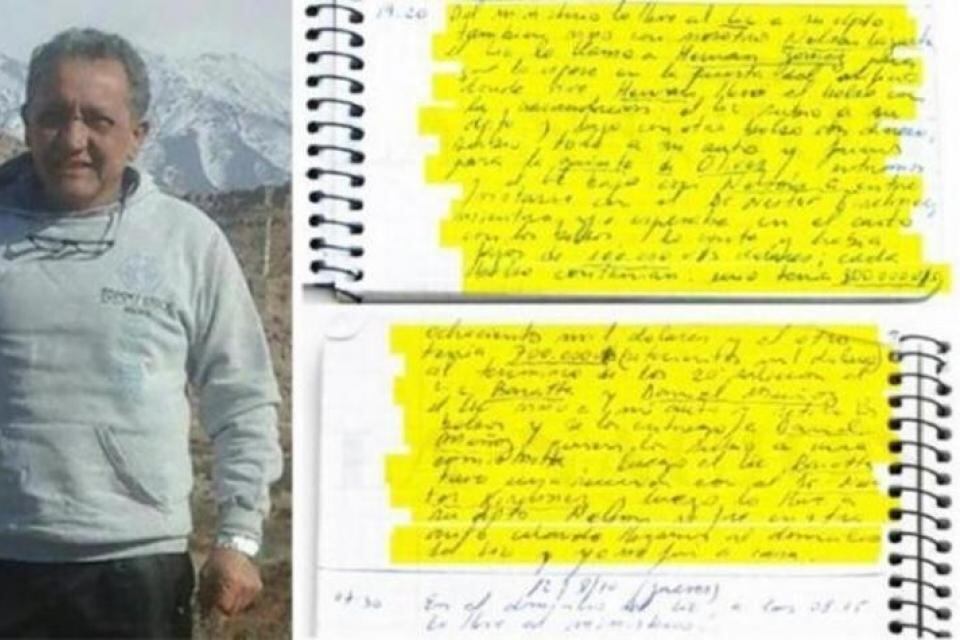 19:20 Del ministerio lo lleve al Lic a su dpto.
tambien vino con nosotros Nelson
el Lic lo llamo a Hernan Gomez para
que lo espere en la puerta del edificio
donde vive Hernan llevo el bolso con
la recaudacion el Lic subio a su
dpto y bajo con otro bolso con dinero,
todo a mi auto y fuimos
para la quinta de Olivos
el Lic bajo con Nelson a entre
en el Dr Nestor Kirchner
mientras yo esperaba en el auto
con los bolsos. Lo conté y había
fajos de 100.000 u/s dolares, cada
bolso contenian: uno tenia 800.000 u/s
ochociento mil dolares y el otro
tenia 700.000 (setecientos mil dolares)
al termino de los 20 minutos el
Lic Baratta y Daniel Muñoz
el Lic vino a mi auto y retiro los
bolsos y se los entrego a Daniel
Muñoz y
Luego el Lic Baratta
tuvo una reunion con el Dr Nes
tor Kirchner, luego lo lleve a
su dpto. Nelson se fue en otro
auto cuando llegamos al domicilio
del Lic y yo me fui a casa.
12/8/10 (jueves)
07:30 En el domicilio del Lic, a las 08:15
lo lleve al ministerio.